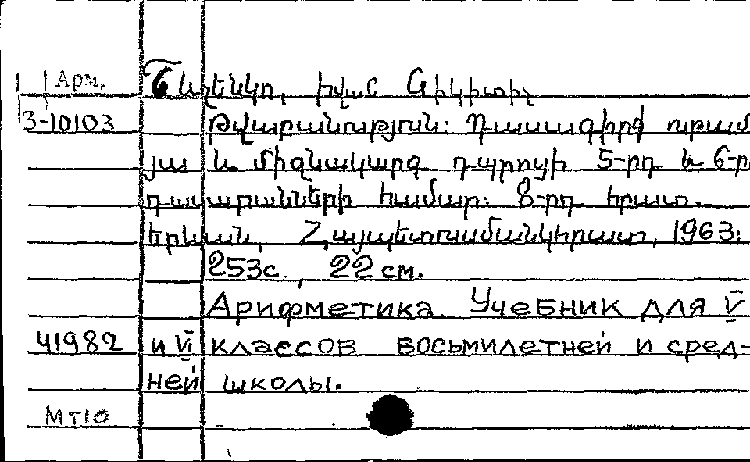 Арм.
Շևչենկո, Իվան Նիկիտիչ
3-10103 Թվաբանություն: Դասագիրք ութամ
յա և միջնակարգ դպրոցի 5-րդ և 6-րդ
դասարանների համար: 8-րդ հրատ.
Երևան, Հայպետուսմանկհրատ, 1963:
253с. 22 см.
Арифметика. Учебник для V
41982 и VI классов восьмилетней и сред-
ней школы.
МТ10